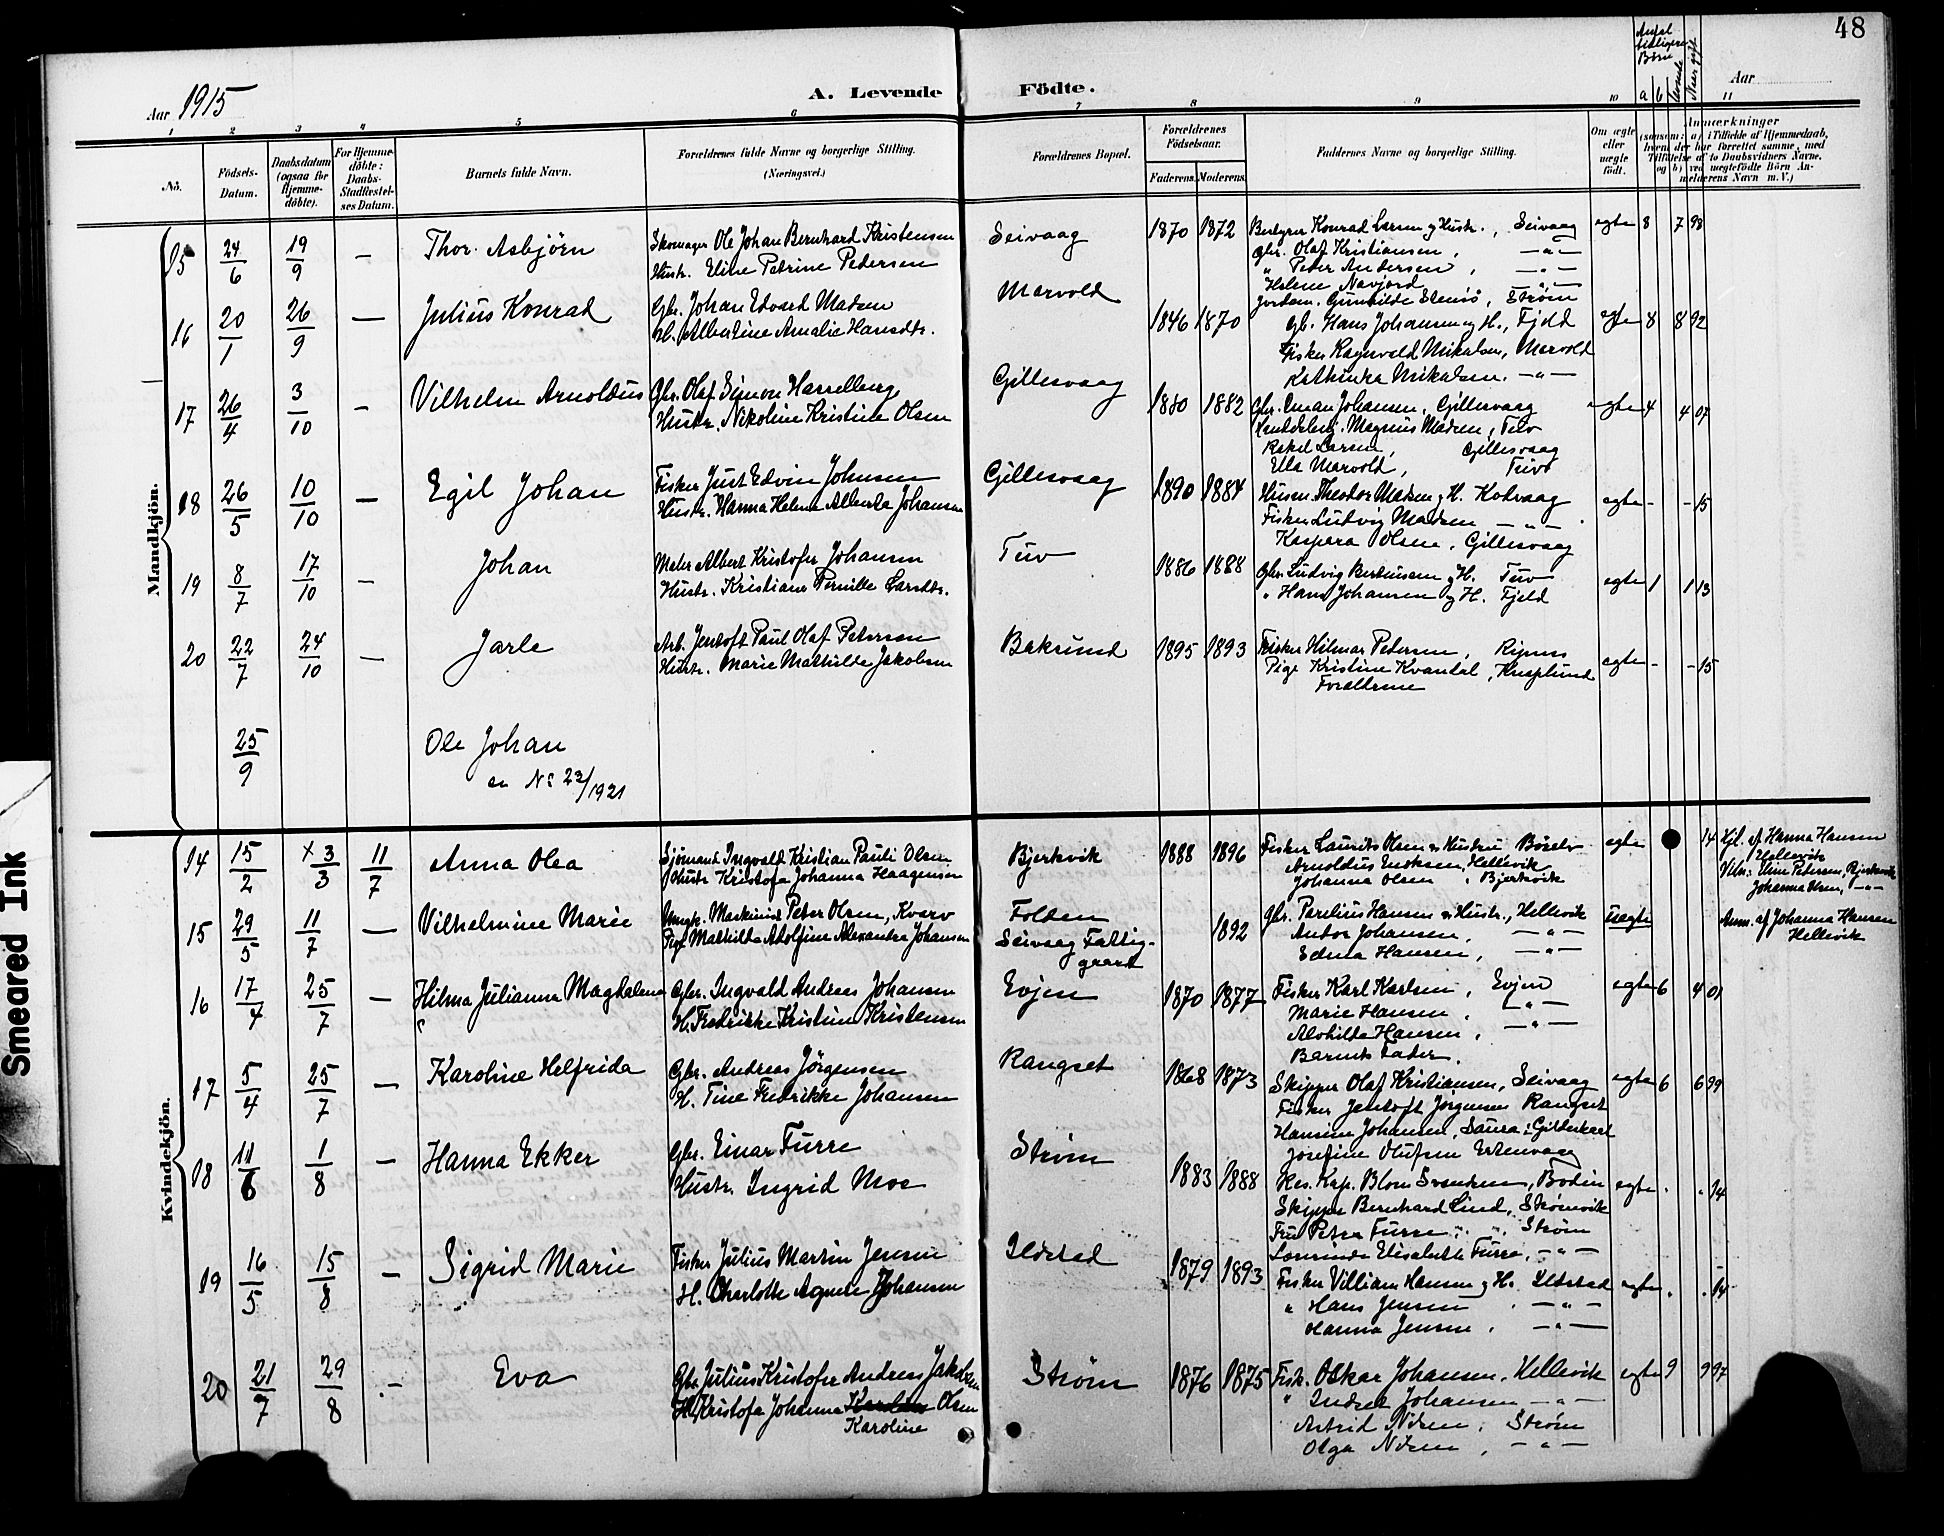 48
Aar 1915
A. Levende Födte.
Aar
Antal tidligere Börn
a b levende Naar gift
1 2 3 4 5 6 7 8 9 10 11
No.
Födsels-Datum.
Daabsdatum (ogsaa for Hjemme-döbte).
For Hjemme-döbte: Daabs-Stadfæstel-ses Datum.
Barnets fulde Navn.
Forældrenes fulde Navne og borgerlige Stilling.
(Næringsvei.)
Forældrenes Bopæl.
Forældrenes Födselsaar.
Faderens. Moderens.
Faddernes Navne og borgerlige Stilling.
Om ægte eller uægte födt.
Anmærkninger
(saasom: a) i Tilfælde af Hjemmedaab, hvem der har forrettet samme, med Tilföielse af to Daabsvidners Navne, og b) ved uægtefödte Börn An-melderens Navn m. V.)
Mandkjön.
15 24/6 19/9 — Thor Asbjörn Skomager Ole Johan Bernhard Kristensen Seivaag 1870 1872 Konrad Larsen og Hustr., Seivaag egte 8 7 98
Hustr. Eline Petrine Pedersen Gbr. Olaf Kristiansen, —"—
" Peder Andersen, —"—
Helene Navjord —"—
Jordem. Gunhilde Stensö, Ström
16 20/1 26/9 — Julius Konrad Gbr. Johan Edvard Madsen Marvold 1846 1870 Gb. Hans Johansen og H., Fjeld egte 8 8 92
H. Albertine Amalie Hansdtr. Fisker Ragnvald Mikalsen, Marvold
Kathinka Mikalsen. —"—
17 26/4 3/10 — Vilhelm Arnoldus Gbr. Olaf Simon Hasselberg Gillesvaag 1880 1882 Gbr. Johansen, Gillesvaag egte 4 4 07
Hustr. Nikoline Kristine Olsen Magnus Madsen, Tuv
Rakel Larsen, Gillesvaag
Ella Marvold, Tuv
18 26/5 10/10 — Egil Johan Fisker Just Edvin Johnsen Gillesvaag 1890 1884 Husm. Theodor Madsen og H. Kodvaag egte - - 15
Hustr. Hanna Helene Alberta Johansen Fisker Ludvig Madsen —"—
Kaspara Olsen, Gillesvaag
19 8/7 17/10 — Johan Maler Albert Kristofer Johansen Tuv 1886 1888 Gbr. Ludvig Berntsen og H. Tuv egte 1 1 13
Hustr. Kristiane Pernille Larsdtr. " Hans Johansen og H. Fjeld
20 22/7 24/10 — Jarle Arb. Jentoft Paul Olaf Petersen Baksund 1895 1893 Fisker Hilmar Pedersen, egte - - 15
Hustr. Marie Mathilde Jakobsen Pige Kristine Kvandal, Knaplund
Forældrene
25/9 Ole Johan
en No 23/1921
Kvindekjön.
14 15/2 × 3/3 11/7 Anna Olea Sjömand Ingvald Kristian Pauli Olsen Bjerkvik 1888 1896 Fisker Laurits Olsen og Hustru egte 14 Hj. af Hanna Hansen
Hustr Kristofa Johanna Haagensen Arnoldus Eriksen, Hellevik Hellevik
Johanna Olsen, Bjerkvik Vitn: Eline Petersen, Bjerkvik
Johanna Olsen, —"—
15 29/5 11/7 — Vilhelmine Marie Ungk. Maskinist Peter Olsen, Kvarv Folden 1892 Gbr. Parelius Hansen og Hustr., Hellevik uegte Anm. af Johanna Hansen
Pige Mathilde Adolfine Alexandra Johansen Seivaag Fattig-gaard Andor Johansen, —"— Hellevik
Edna Hansen, —"—
16 17/4 25/7 — Hilma Julianna Magdalene Gbr. Ingvald Andreas Johansen Evjen 1870 1877 Fisker Karl Karlsen, Evjen egte 6 4 01
H. Fredrikke Kristine Kristensen Marie Hansen, —"—
Alvhilda Hansen, —"—
Barnets Fader.
17 5/4 25/7 — Karoline Helfrida Gbr. Andreas Jörgensen Rangset 1868 1873 Skipper Olaf Kristiansen, Seivaag egte 6 6 99
H. Tine Fredrikke Johansen Fisker Jentoft Jörgensen Rangset
Hansine Johansen,
Josefine Olufsen
18 11/6 1/8 — Hanna Ekker Gbr. Einar Furre Ström 1883 1888 Res. Kap. Blom Svendsen, Bodin egte . . 14
Hustr. Ingrid Moe Skipper Bernhard Lind, Strömvik
Fru Petra Furre, Ström
Lærerinde Elisabeth Furre, —"—
19 16/5 15/8 — Sigrid Marie Fisker Julius Martin Jensen Ildstad 1879 1893 Fisker Villiam Hansen og H. Ildstad egte . . 14
H. Charlotte Agnete Johansen " Hans Jensen, —"—
Hanna Jensen, —"—
20 21/7 29/8 — Eva Gbr Julius Kristofer Andreas Jakobsen Ström 1876 1875 Fisk. Oskar Johansen, Hellevik egte 9 9 97
H. Kristofa Johanna Karoline Olsen " Indret Johansen —"—
Astrid Nilsen, Ström
Olga Nilsen, —"—
Smeared Ink